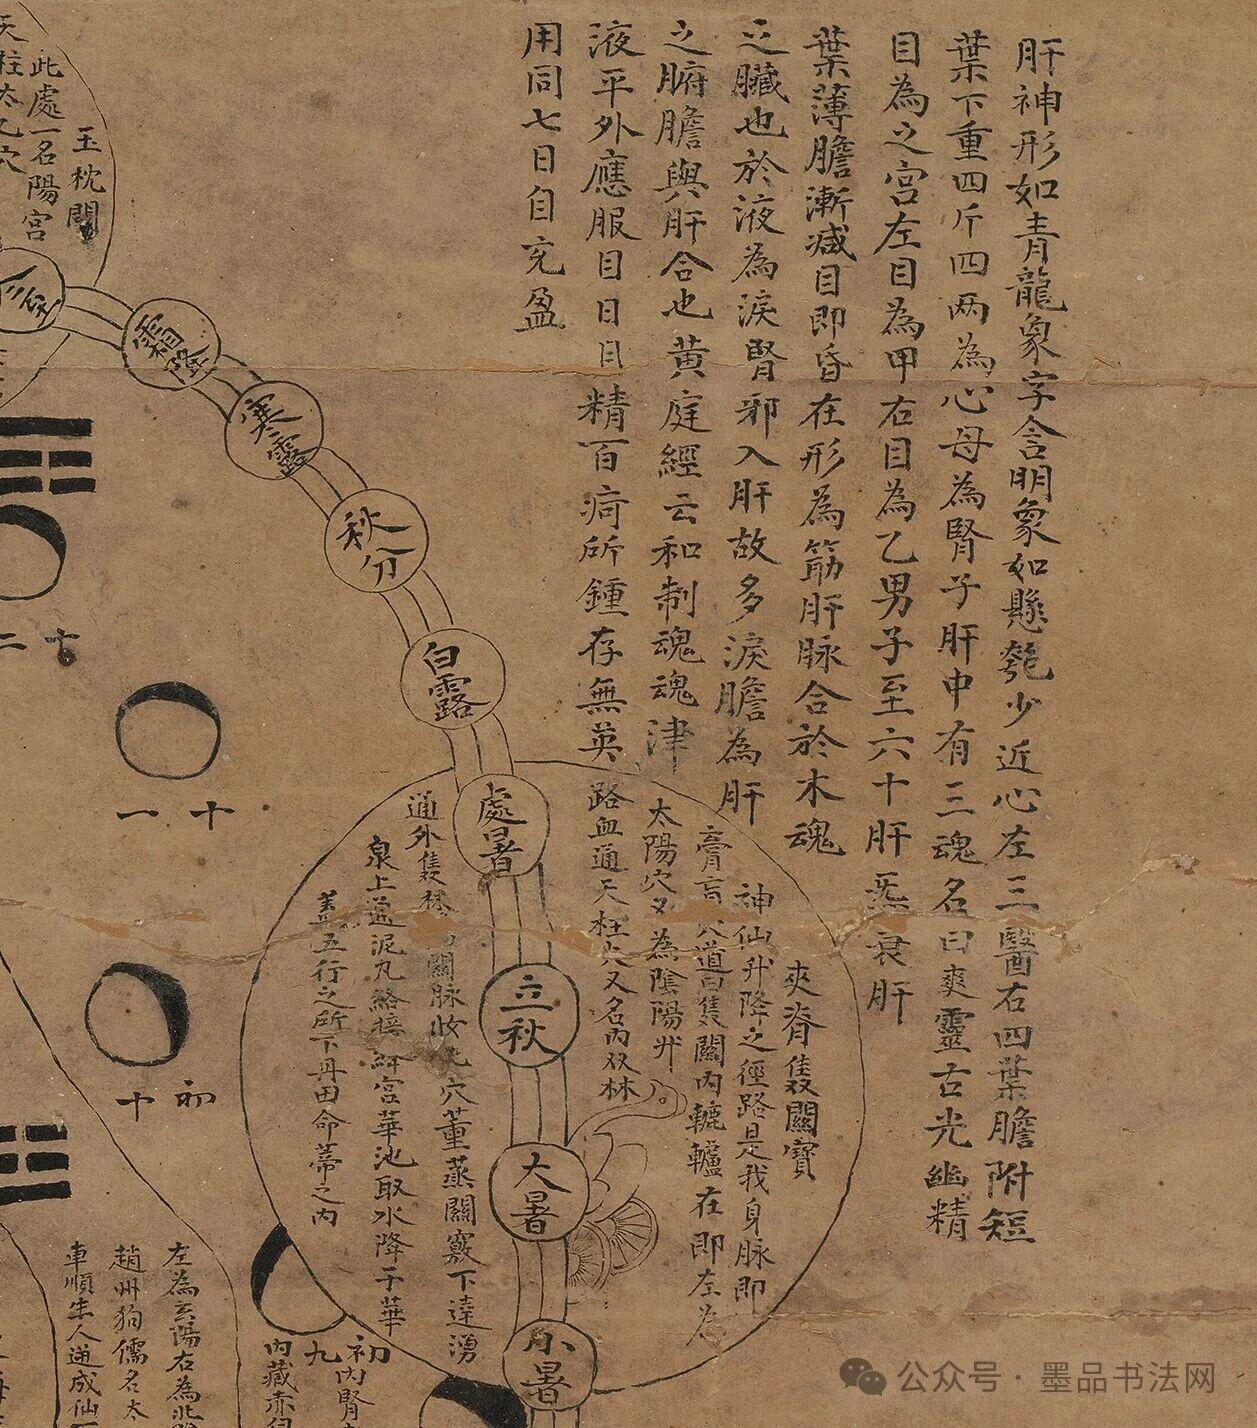 肝神形如青龍象字含明象如懸匏少近心左三醫右四葉膽附短
葉下重四斤四兩為心母為腎子肝中有三魂名曰爽靈古光幽精
目為之宮左目為甲右目為乙男子至六十肝炁衰肝
葉薄膽漸减目即昏在形為筋肝脉合於木魂
之臟也於液為淚腎邪入肝故多淚膽為肝
之腑膽與肝合也黄庭經云和制魂魂津
液平外應服目日月精百疴所鍾存無英
用同七日自充盈
夾脊雙關寶
神仙升降之徑路是我身脉即
膏肓穴道曰雙關內轆轤在即左為
太陽穴又為陰陽升
路血通天柱穴又名內双林
通外雙林
關脉妝 穴董蒸關竅下達湧
泉上通泥丸絡接絳宮華池取水降于華
蓋五行之所下丹田命蒂之內
玉枕關
此處一名陽宮
天柱太乙穴
霜降
寒露
秋分
白露
處暑
立秋
大暑
小暑
十二
十一
初十
初九
左為玄陽右為北
趙州狗儒名太
車順生人逆成仙
內腎
內藏赤白
公众号·墨品书法网